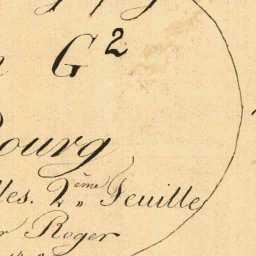 G²
Bourg
les. 2ème Feuille
r Roger